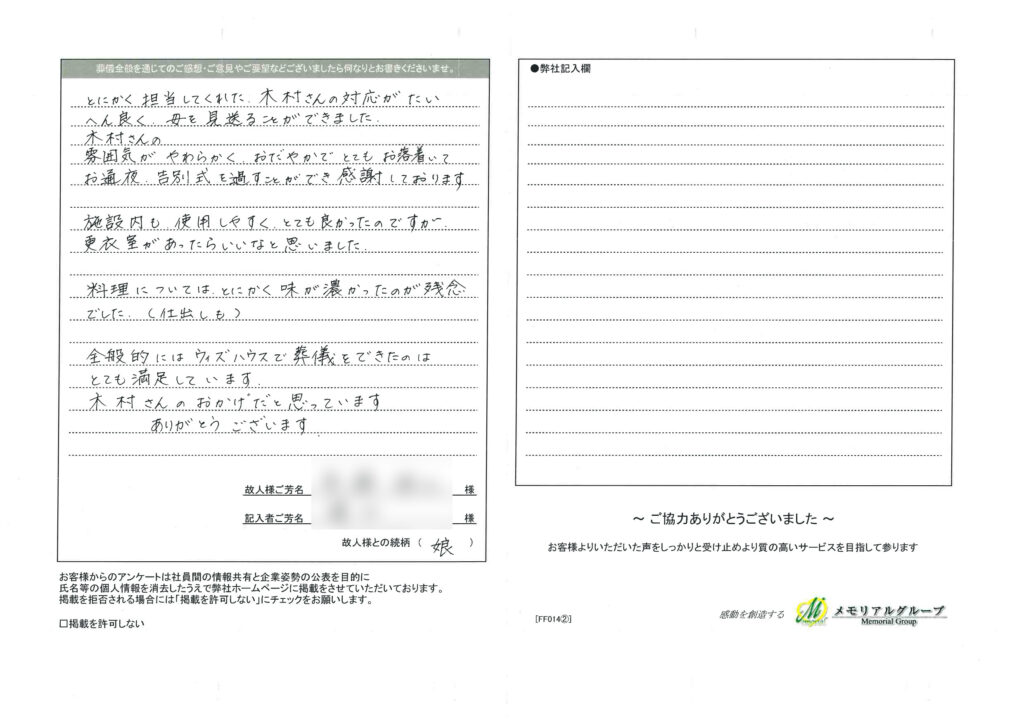 葬儀全般を通じてのご感想・ご意見やご要望などございましたら何なりとお書きくださいませ。
とにかく担当してくれた、木村さんの対応がたい
へん良く、母を見送ることができました。
木村さんの
雰囲気がやわらかく、おだやかでとてもお落着いて
お通夜、告別式を過すことができ感謝しております
施設内も、使用しやすく、とても良かったのですが、
更衣室があったらいいなと思いました。
料理については、とにかく味が濃かったのが残念
でした。(仕出しも)
全般的にはウィズハウスで葬儀をできたのは
とても満足しています。
木村さんのおかげだと思っています
ありがとうございます。
故人様ご芳名 様
記入者ご芳名 様
故人様との続柄(娘)
お客様からのアンケートは社員間の情報共有と企業姿勢の公表を目的に
氏名等の個人情報を消去したうえで弊社ホームページに掲載をさせていただいております。
掲載を拒否される場合には「掲載を許可しない」にチェックをお願いします。
□掲載を許可しない
●弊社記入欄
~ ご協力ありがとうございました ~
お客様よりいただいた声をしっかりと受け止めより質の高いサービスを目指して参ります
[FF014②]
感動を創造する
メモリアルグループ
Memorial Group